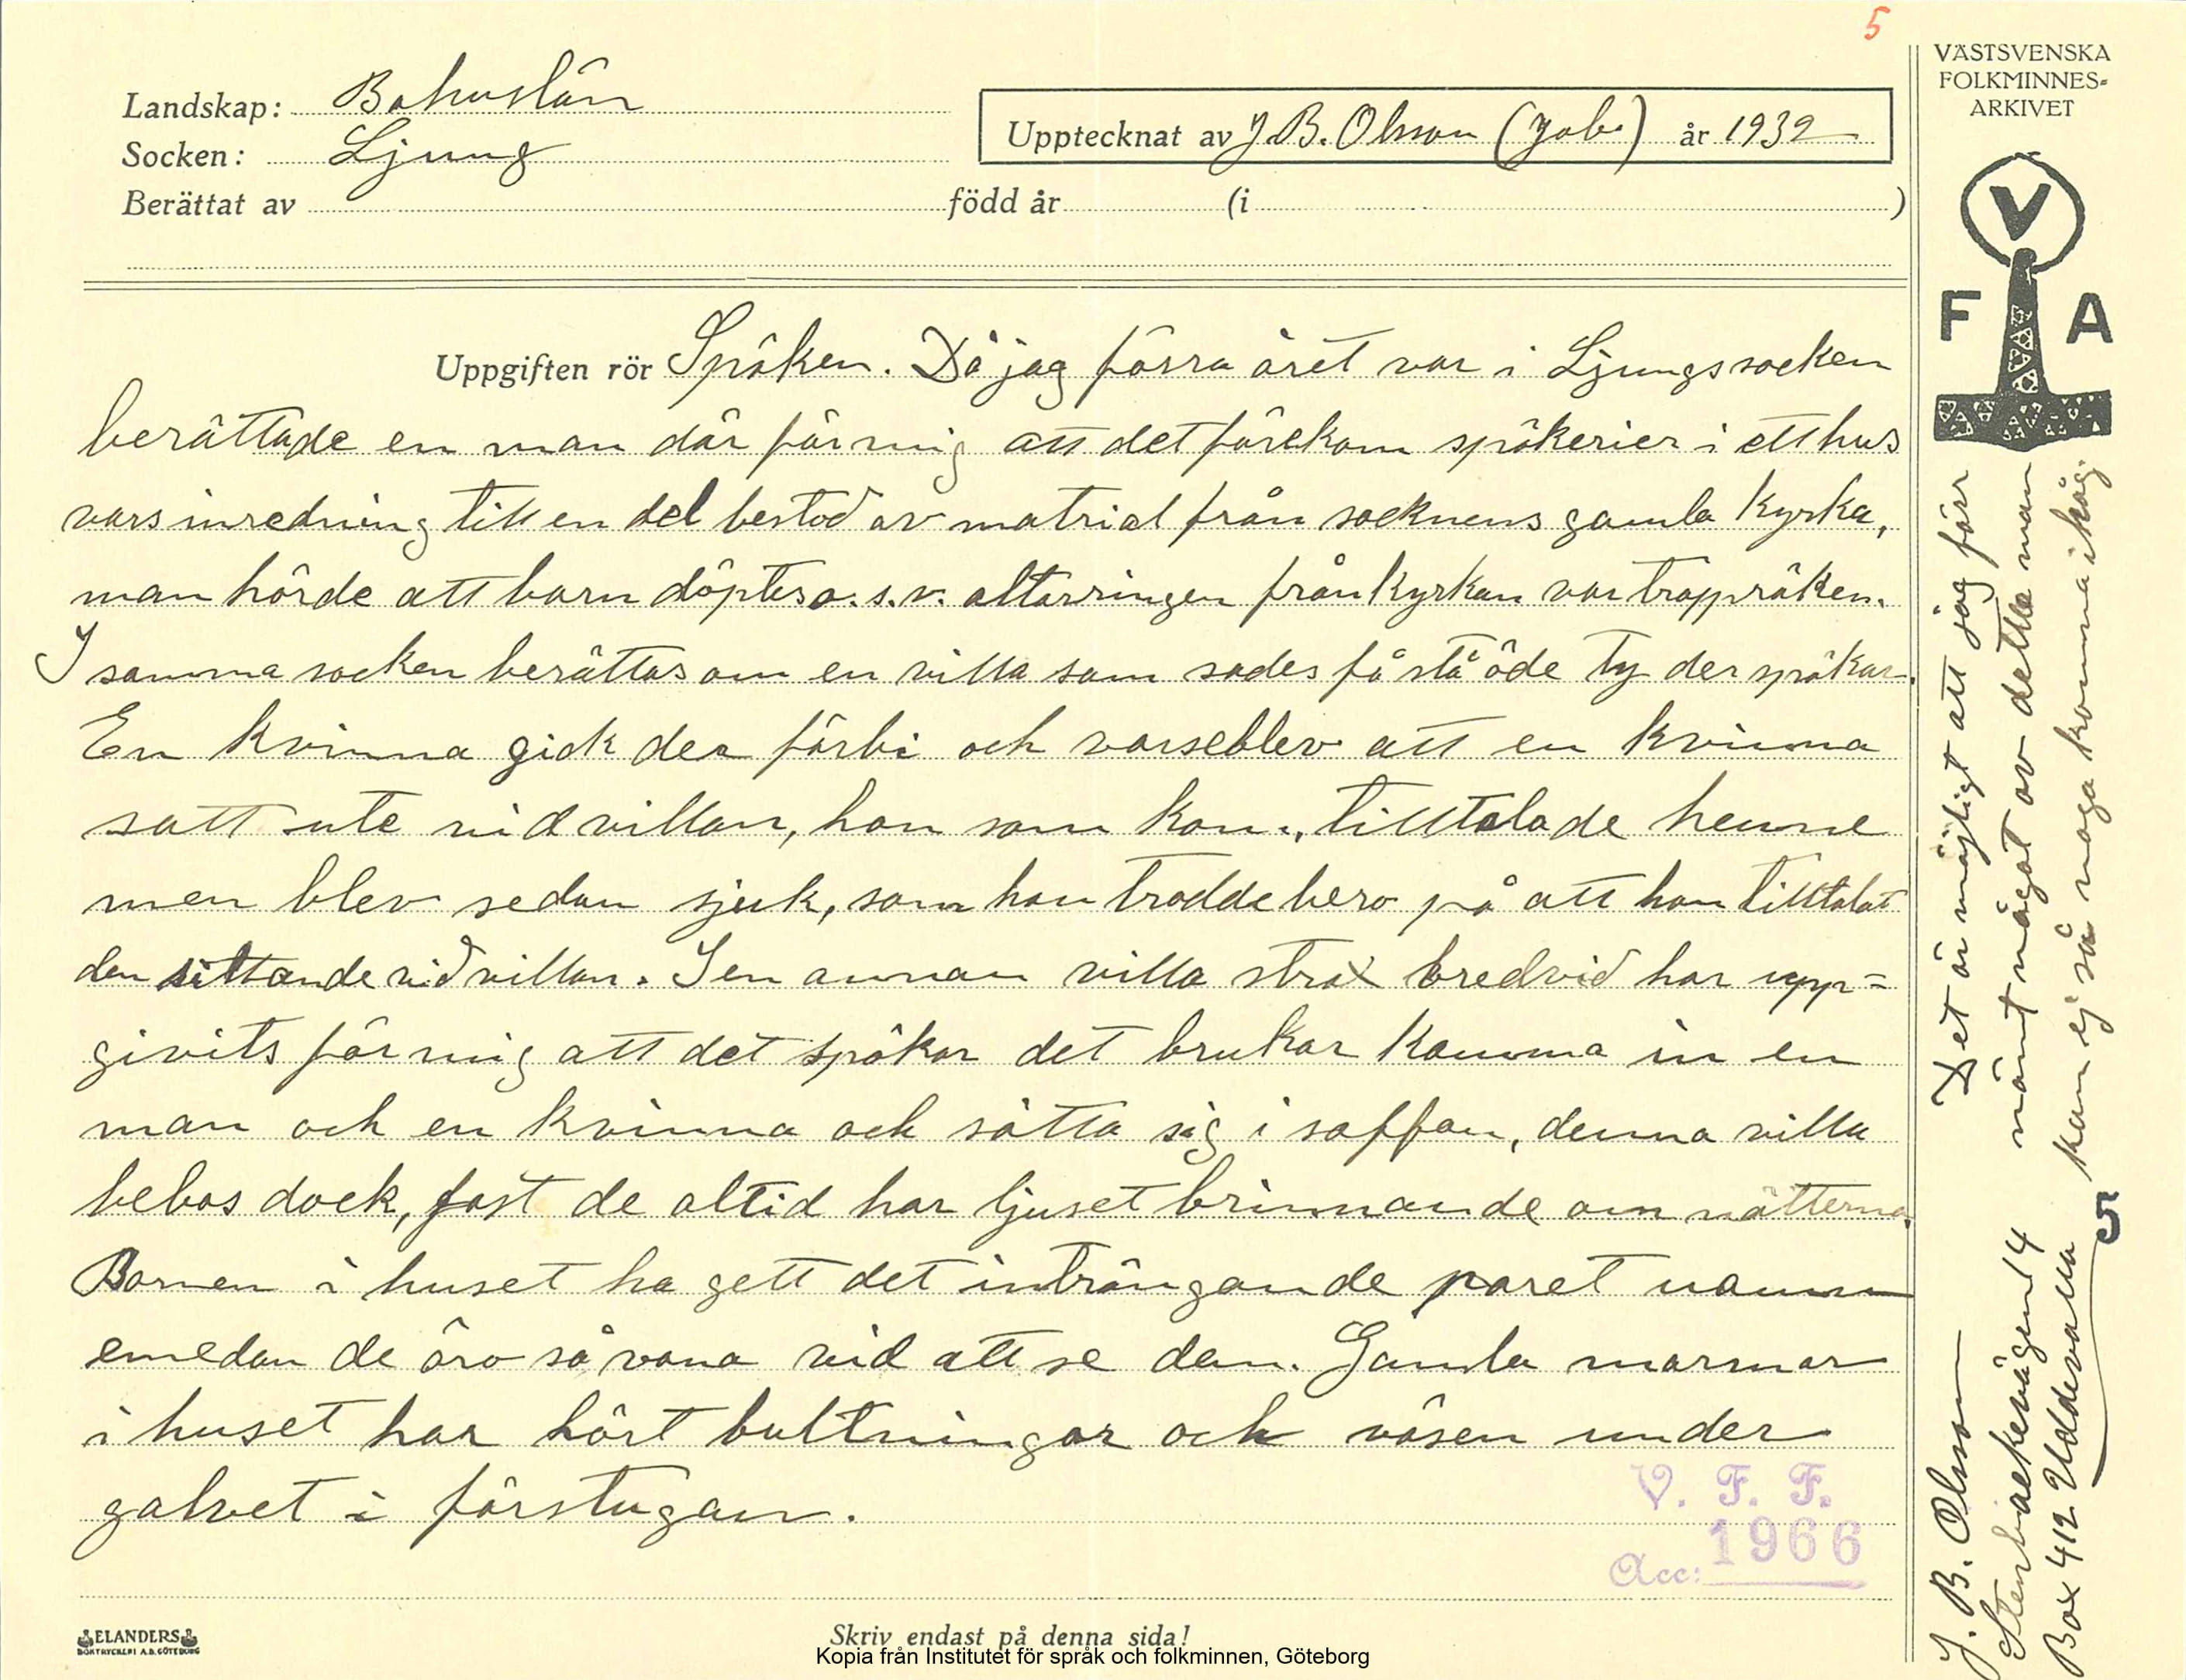 5
Landskap: Bohuslän
Socken: Ljung
Berättat av
Upptecknat av J. B. Olsson (Job.) år 1932
född år (i )
VÄSTSVENSKA
FOLKMINNES=
ARKIVET
V
F A
Uppgiften rör Spöken. Då jag förra året var i Ljungs socken
berättade en man där för mig att det förekom spökerier i ett hus
vars inredning till en del bestod av matrial från socknens gamla kyrka,
man hörde att barn döptes o.s.v. altarringen från kyrkan var trappräken.
I samma socken berättas om en villa som sades få stå öde ty der spökar.
En kvinna gick der förbi och varseblev att en kvinna
satt ute vid villan, hon som kom, tilltalade henne
men blev sedan sjuk, som hon trodde bero på att hon tilltalat
den sittande vid villan. I en annan villa strax bredvid har upp=
givits för mig att det spökar det brukar komma in en
man och en kvinna och sätta sig i soffan, denna villa
bebos dock, fast de altid har ljuset brinnande om nätterna.
Barnen i huset ha gett det inträngande paret namn
emedan de äro så vana vid att se dem. Gamla mormor
i huset har hört bultningar och väsen under
golvet i förstugan.
V. F. F.
Acc: 1966
ELANDERS
BOKTRYCKERI A.B. GÖTEBORG
Skriv endast på denna sida!
Kopia från Institutet för språk och folkminnen, Göteborg
Det är möjligt att jag förr
nämnt något av detta man
kan ej så noga komma ihåg.
J. B. Olsson
Stenbackevägen 14
Box 412 Uddevalla
5